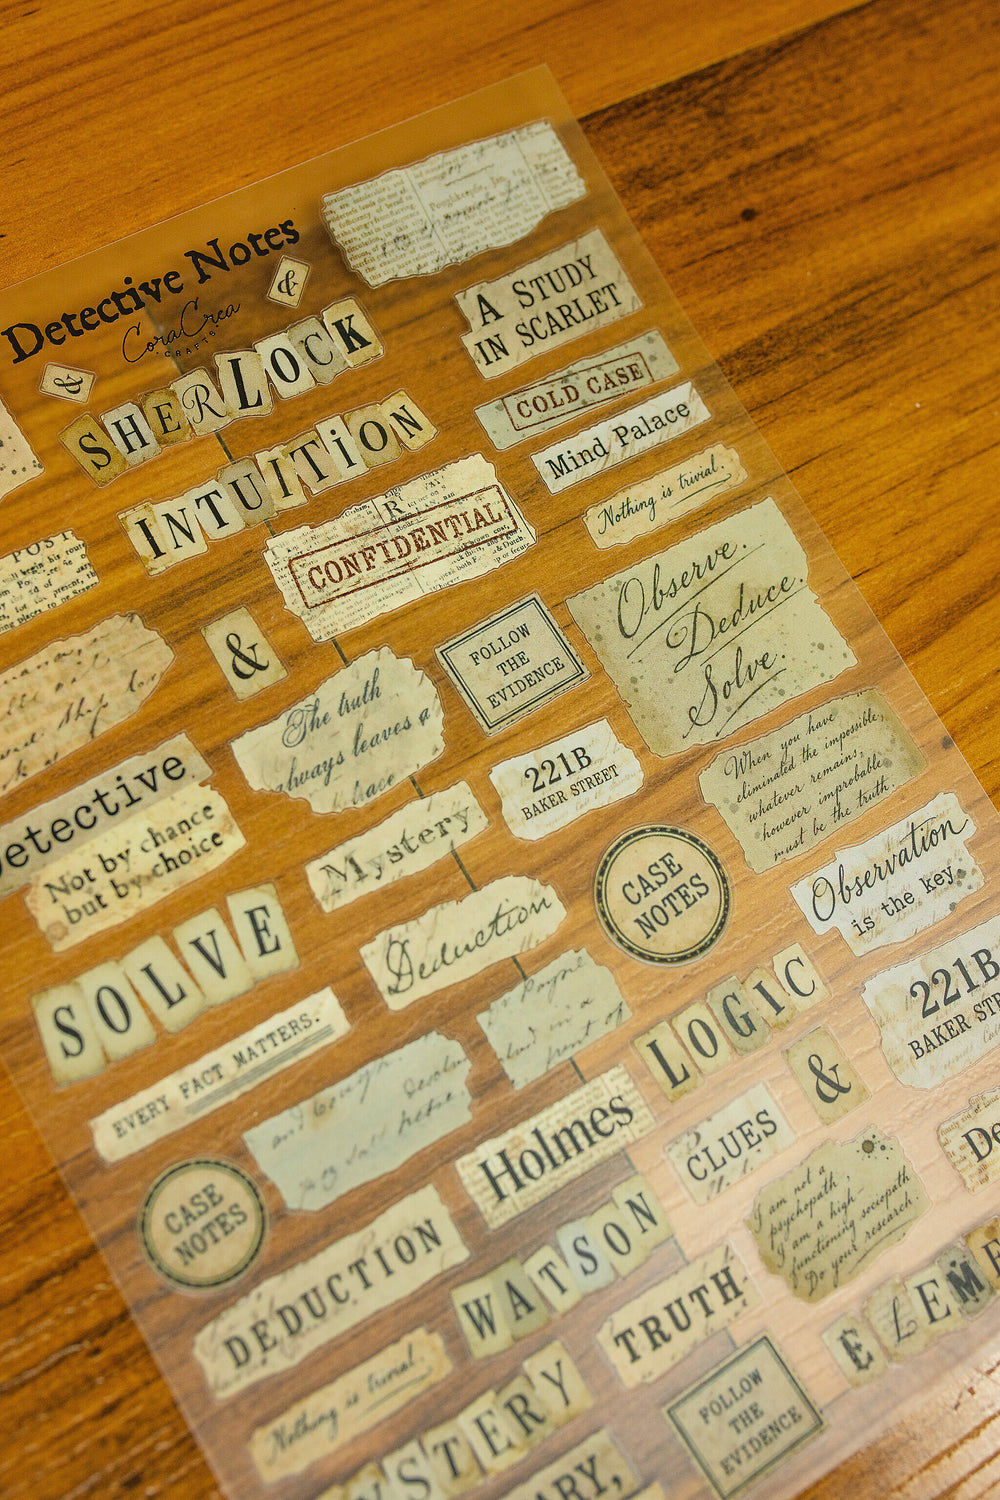 Detective Notes
CoraCrea
CRAFTS
&
&
SHERLOCK
A STUDY
IN SCARLET
COLD CASE
INTUITION
Mind Palace
Nothing is trivial.
CONFIDENTIAL
POST
&
FOLLOW
THE
EVIDENCE
Observe.
Deduce.
Solve.
The truth
always leaves a
trace
Detective
221B
BAKER STREET
When you have
eliminated the impossible,
whatever remains,
however improbable
must be the truth.
Not by chance
but by choice
Mystery.
CASE
NOTES
Observation
is the key.
SOLVE
Deduction
LOGIC
221B
BAKER STR
EVERY FACT MATTERS.
&
Holmes
CLUES
De
CASE
NOTES
I am not a
psychopath,
I am a high-
functioning sociopath
Do your research.
DEDUCTION
WATSON
TRUTH
ELEME
Nothing is trivial.
FOLLOW
THE
EVIDENCE
YSTERY
ARY,